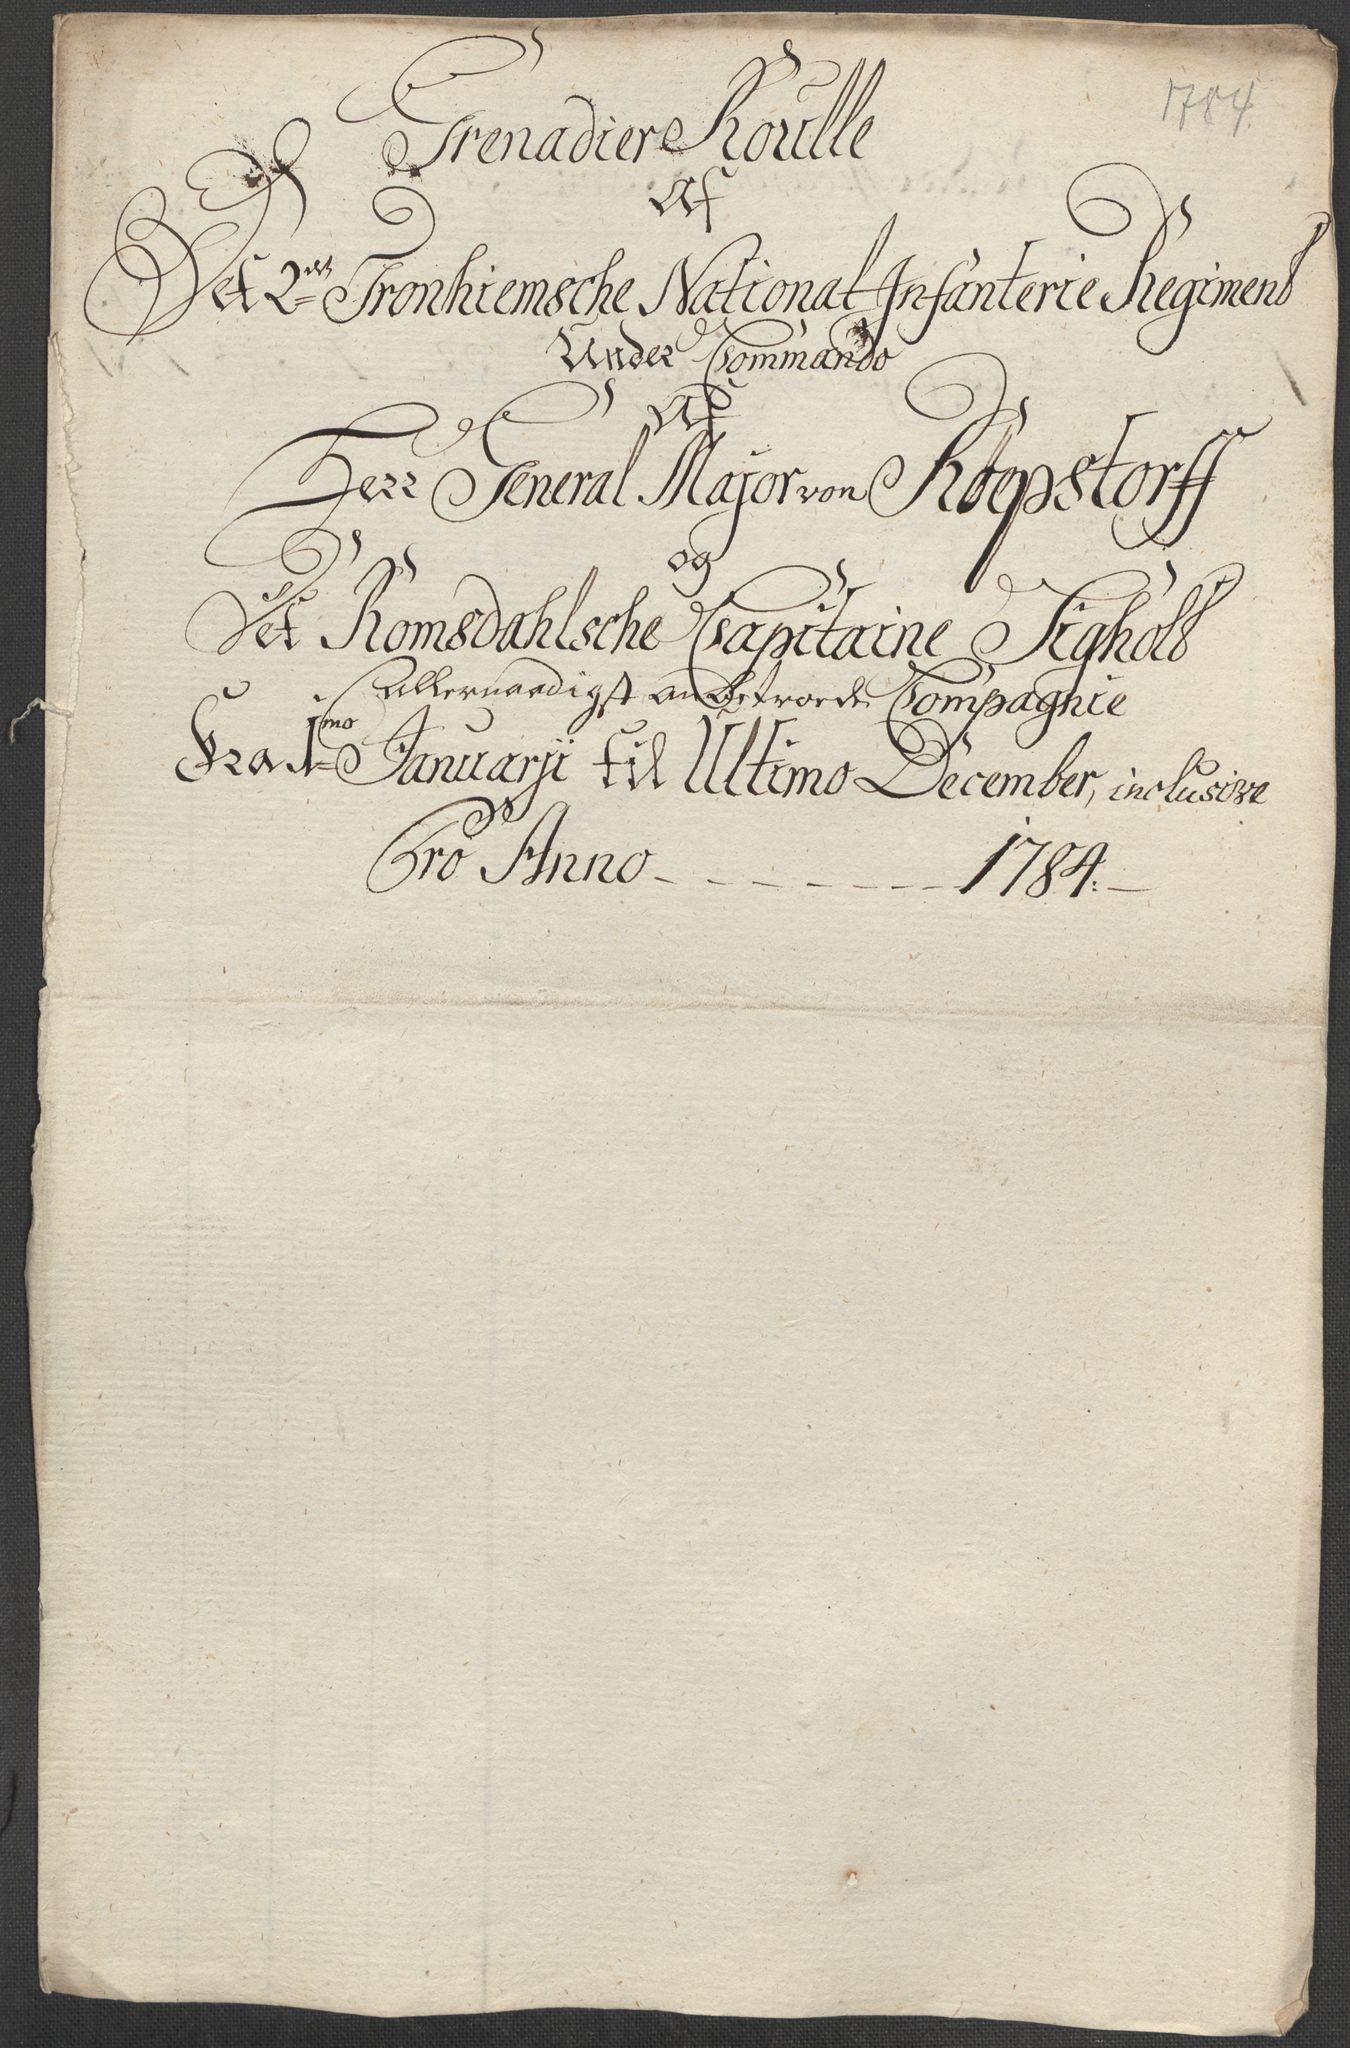 1784.
Grenadier Roulle
Af
Det 2det Tronhiemsche National Infanterie Regiment
Under Commando
Af
Herr General Major von Kropstorff
og
Det Romsdahlsche Capitaine Sigholt
allernaadigst anbetroede Compagnie
Fra 1mo Januarji til Ultimo December, inclusive
Pro Anno - - - - - - - 1784. -